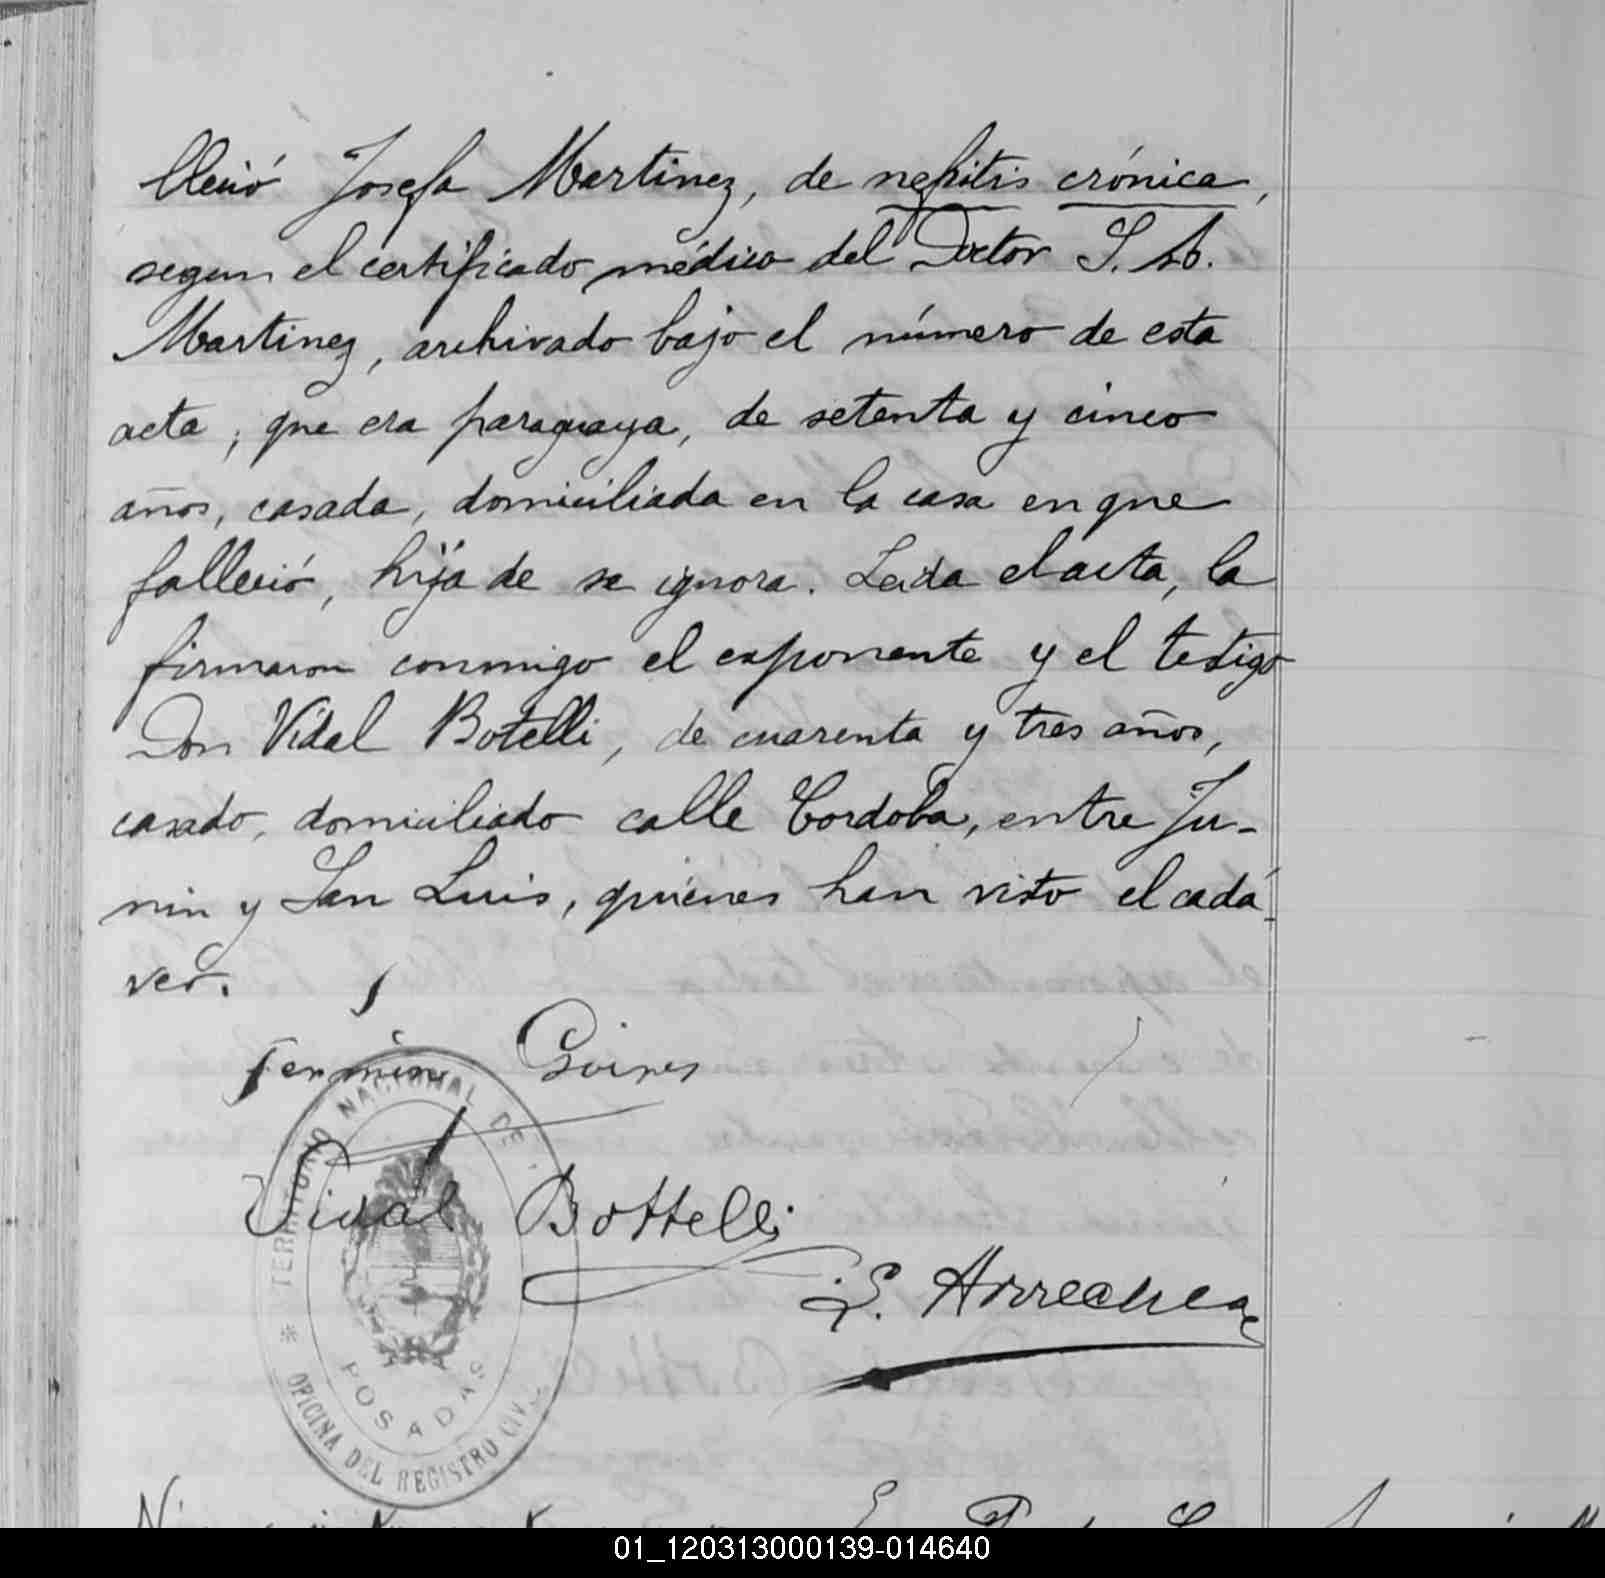 lleció Josefa Martinez, de nefritis crónica,
segun el certificado médico del Doctor S. M.
Martinez, archivado bajo el número de esta
acta; que era paraguaya, de setenta y cinco
años, casada, domiciliada en la casa en que
falleció, hija de se ignora. Leida el acta, la
firmaron conmigo el exponente y el testigo
Don Vidal Botelli, de cuarenta y tres años,
casado, domiciliado calle Cordoba, entre Ju-
nin y San Luis, quiénes han visto el cadá-
ver.
Fermin
Vidal Bottelli
E. Arrechea
TERRITORIO NACIONAL DE
POSADAS
OFICINA DEL REGISTRO CIVIL
01_120313000139-014640